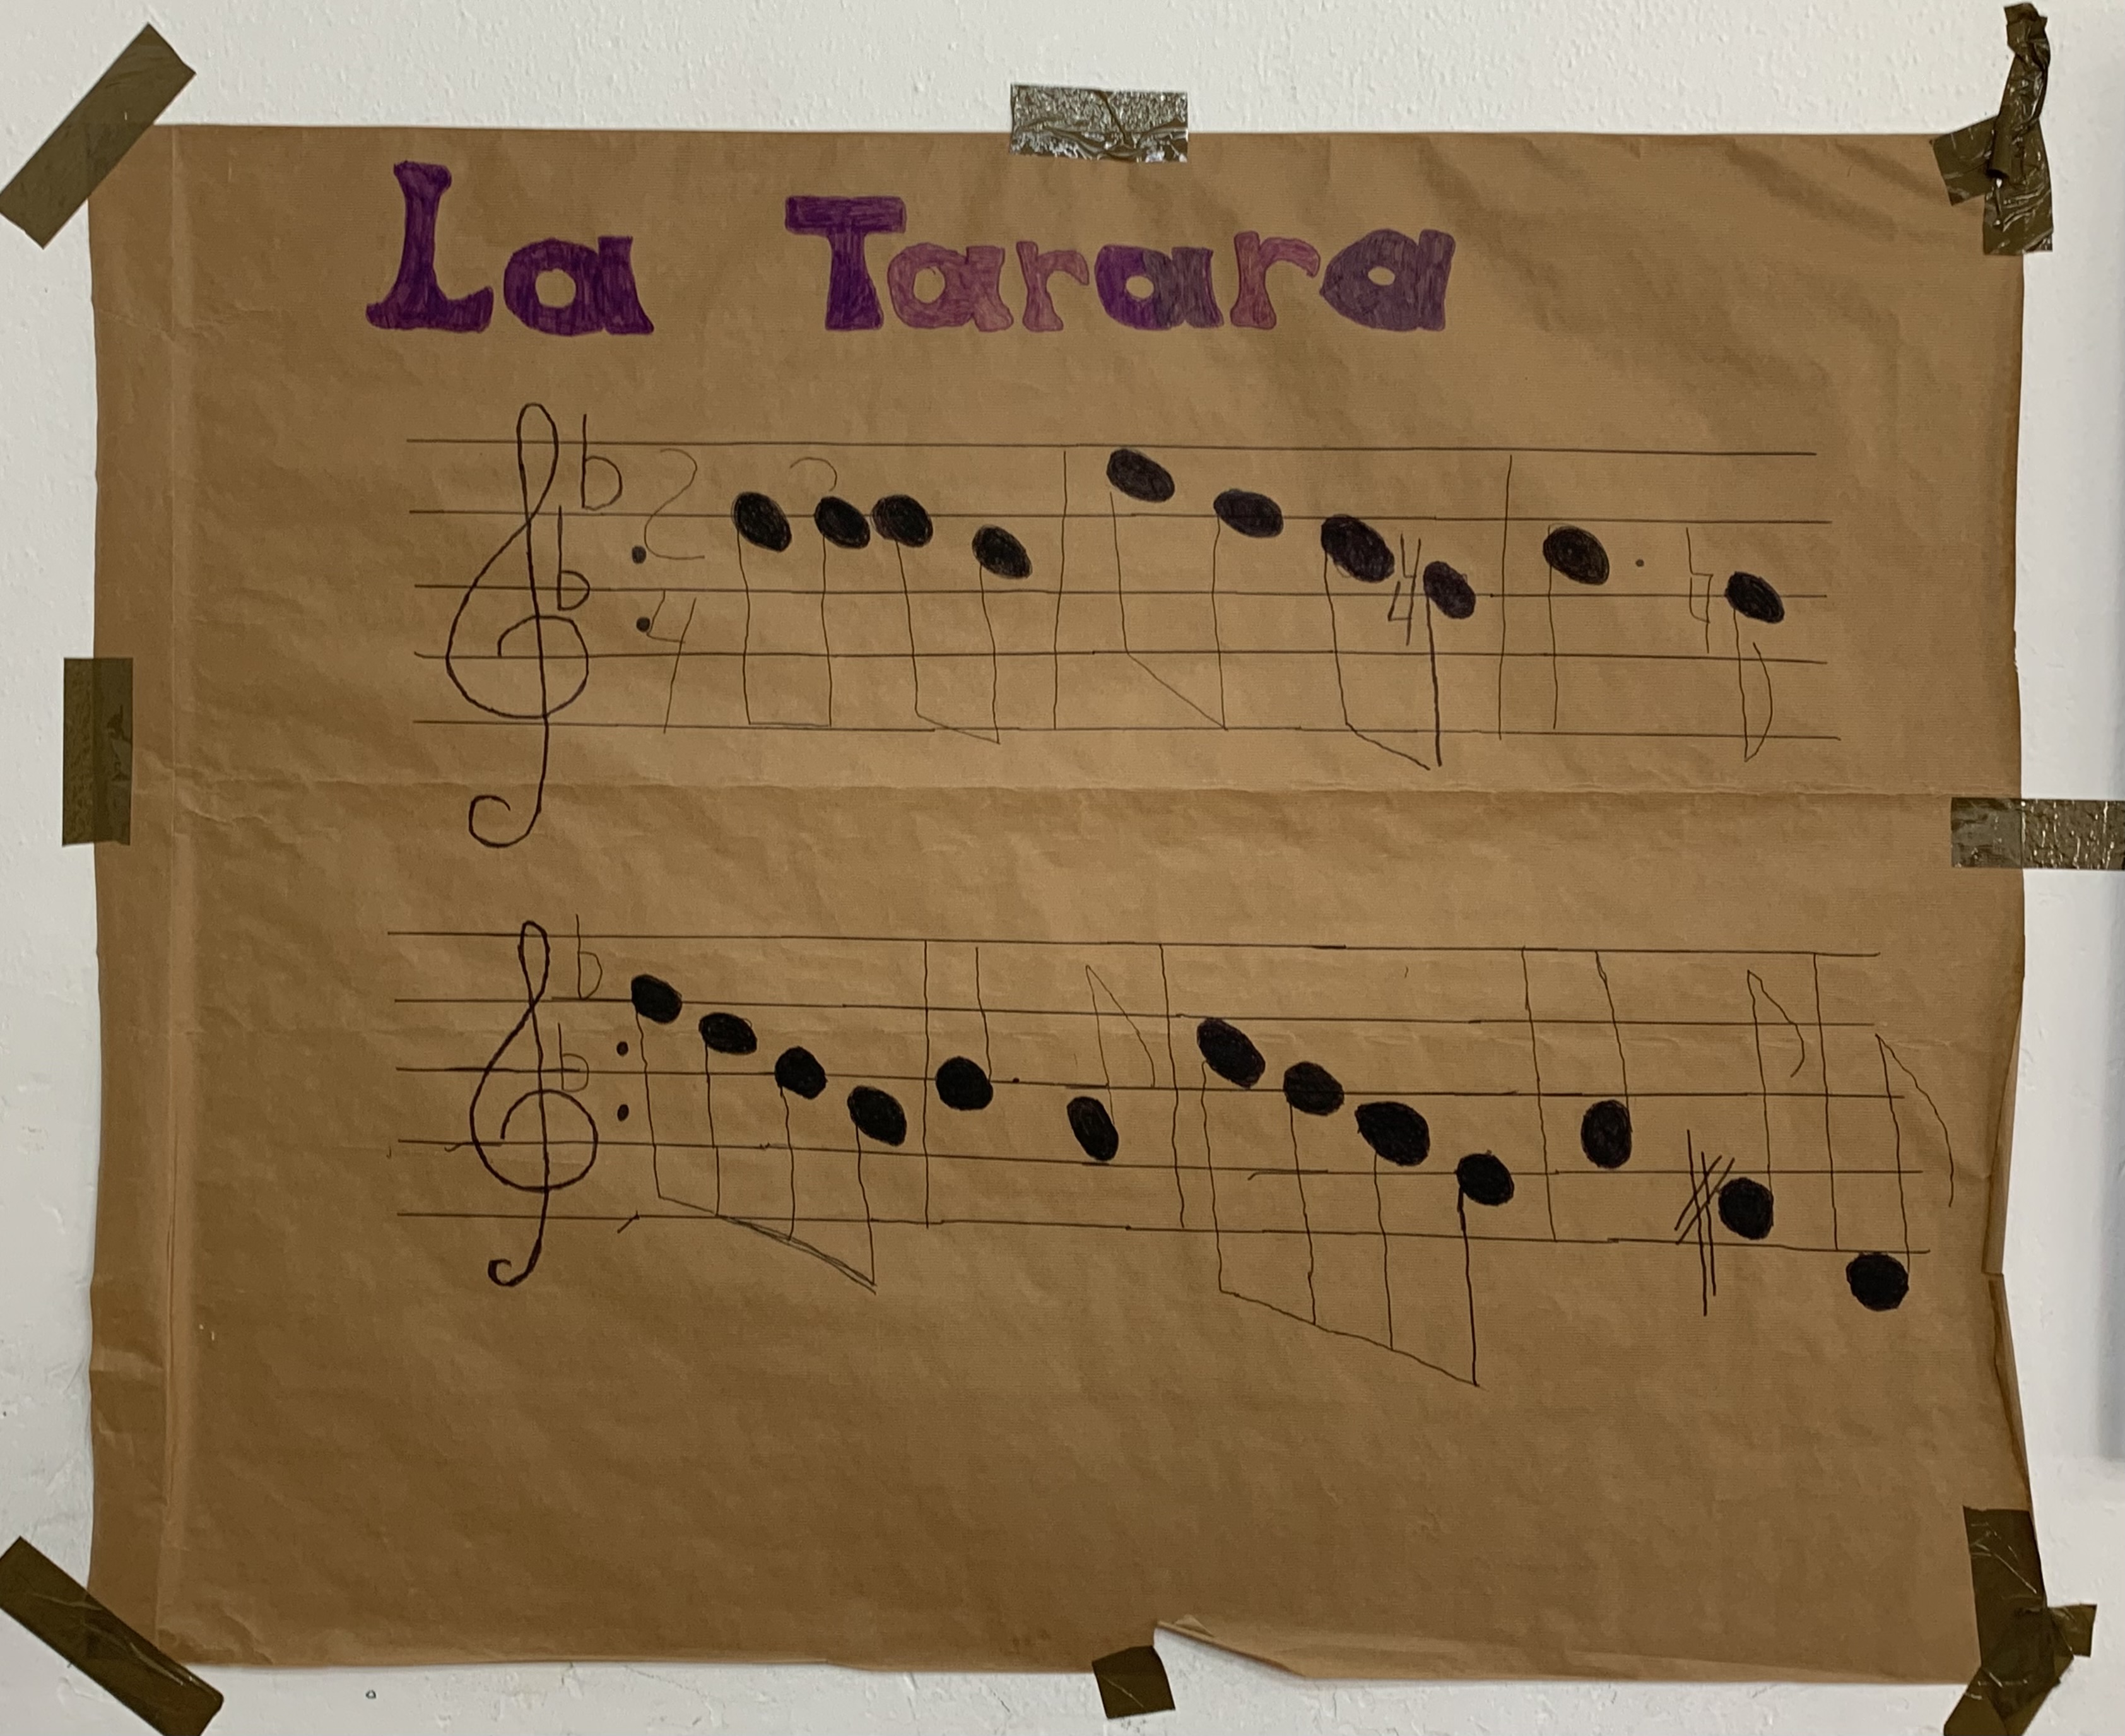 La Tarara
2
4